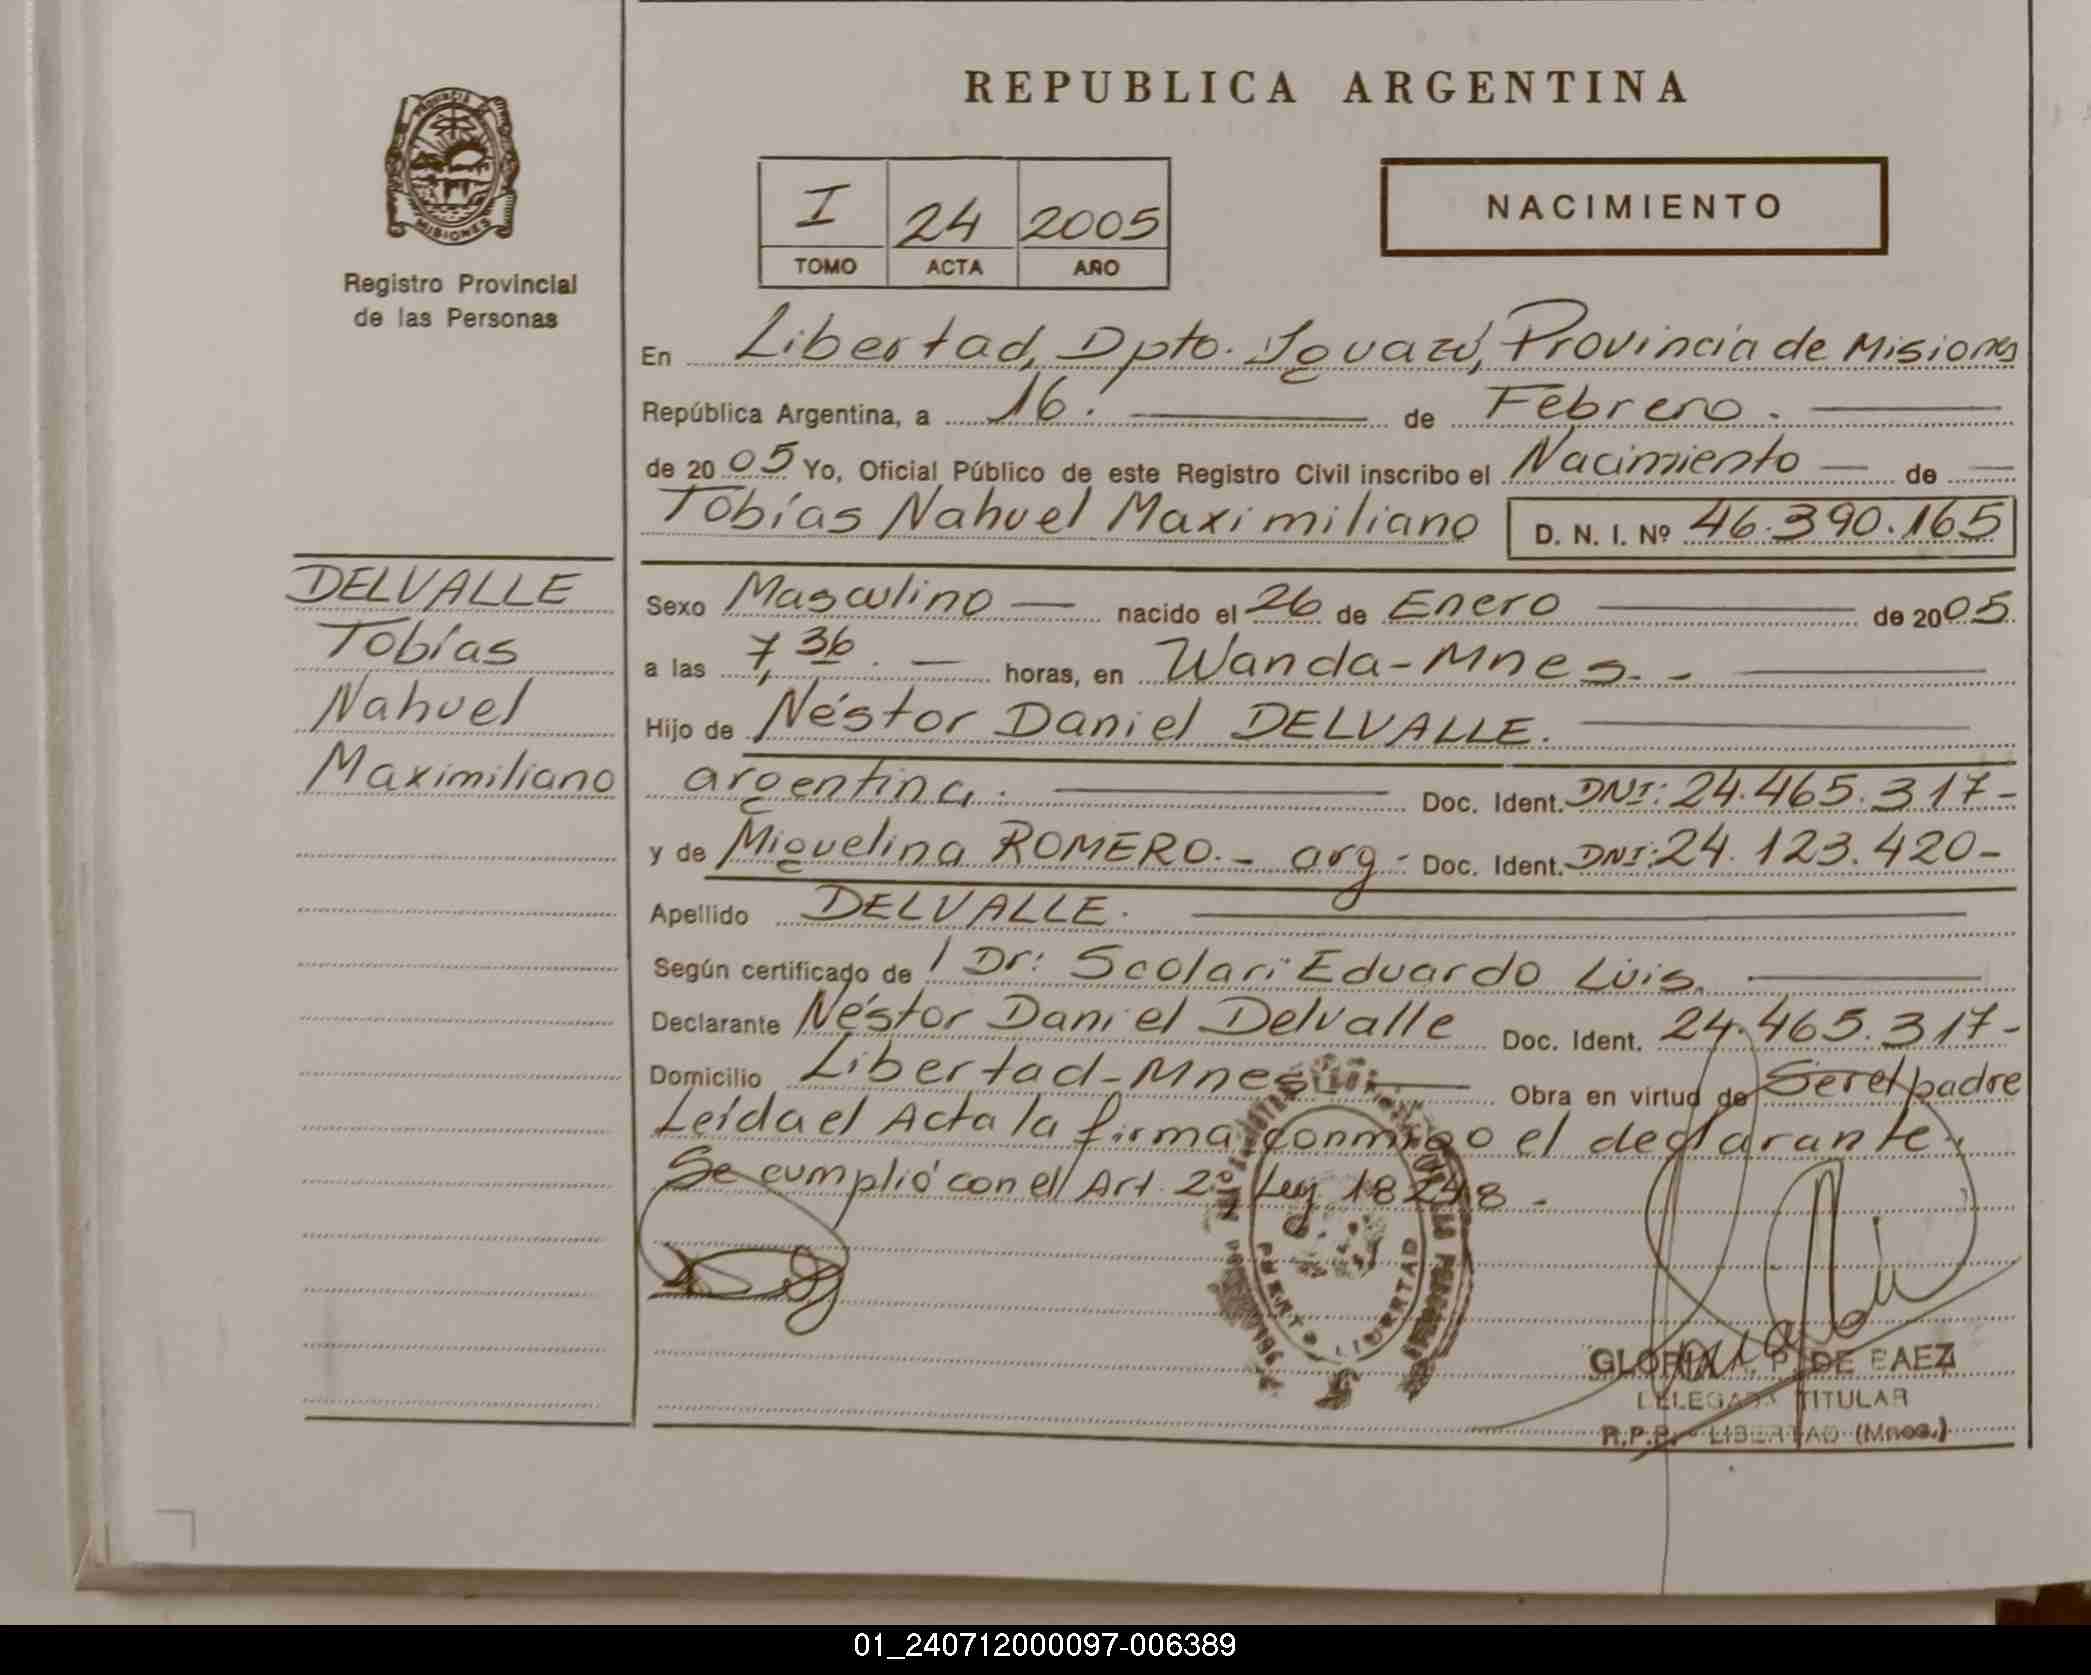 REPUBLICA ARGENTINA
PROVINCIA DE
MISIONES
Registro Provincial
de las Personas
I 24 2005
TOMO ACTA AÑO
NACIMIENTO
En Libertad, Dpto. Iguazú, Provincia de Misiones
República Argentina, a 16. de Febrero.
de 2005 Yo, Oficial Público de este Registro Civil inscribo el Nacimiento — de —
Tobías Nahuel Maximiliano D. N. I. Nº 46.390.165
DELVALLE
Tobías
Nahuel
Maximiliano
Sexo Masculino — nacido el 26 de Enero — de 2005.
a las 7,36. — horas, en Wanda-Mnes.-
Hijo de Néstor Daniel DELVALLE.
argentina. Doc. Ident. DNI: 24.465.317-
y de Miguelina ROMERO.- arg.- Doc. Ident. DNI: 24.123.420-
Apellido DELVALLE.
Según certificado de Dr: Scolari Eduardo Luis.
Declarante Néstor Daniel Delvalle Doc. Ident. 24.465.317-
Domicilio Libertad-Mnes Obra en virtud de Ser el padre
Leída el Acta la firma conmigo el declarante.
Se cumplió con el Art. 2º Ley 18248-
PUERTO LIBERTAD
GLORIA A. P. DE BAEZ
DELEGADA TITULAR
R.P.P. - LIBERTAD (Mnes.)
01_240712000097-006389